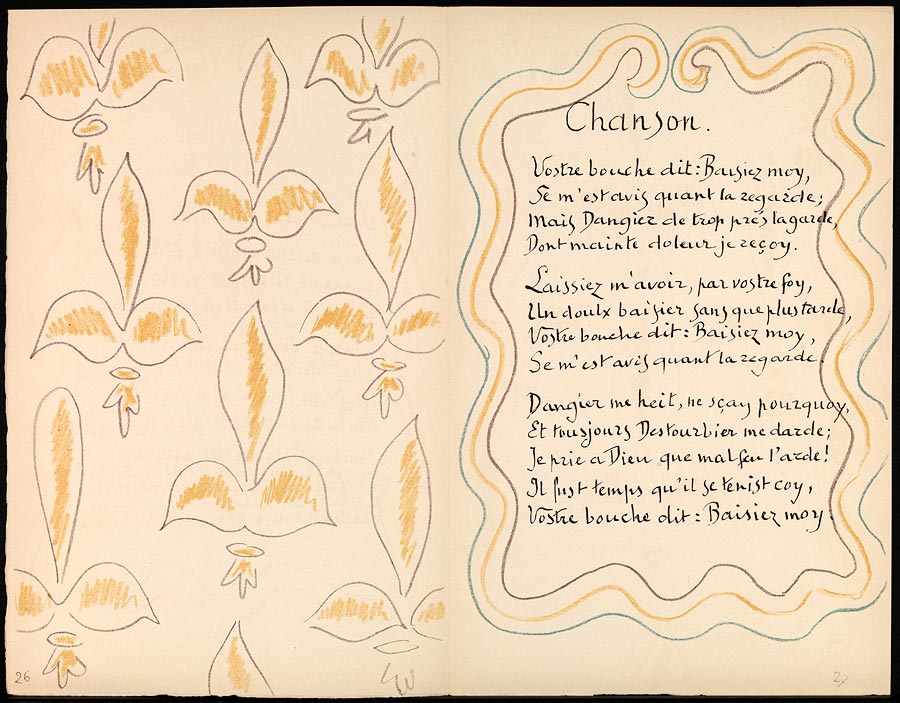 Chanson.
Vostre bouche dit: Baisiez moy,
Se m'est avis quant la regarde;
Mais Dangier de trop prés la garde,
Dont mainte doleur je reçoy.
Laissiez m'avoir, par vostre foy,
Un doulx baisier sans que plus tarde,
Vostre bouche dit: Baisiez moy,
Se m'est avis quant la regarde.
Dangier me heit, ne sçay pourquoy,
Et tousjours Destourbier me darde;
Je prie a Dieu que mal feu l'arde!
Il fust temps qu'il se tenist coy,
Vostre bouche dit: Baisiez moy.
26
27